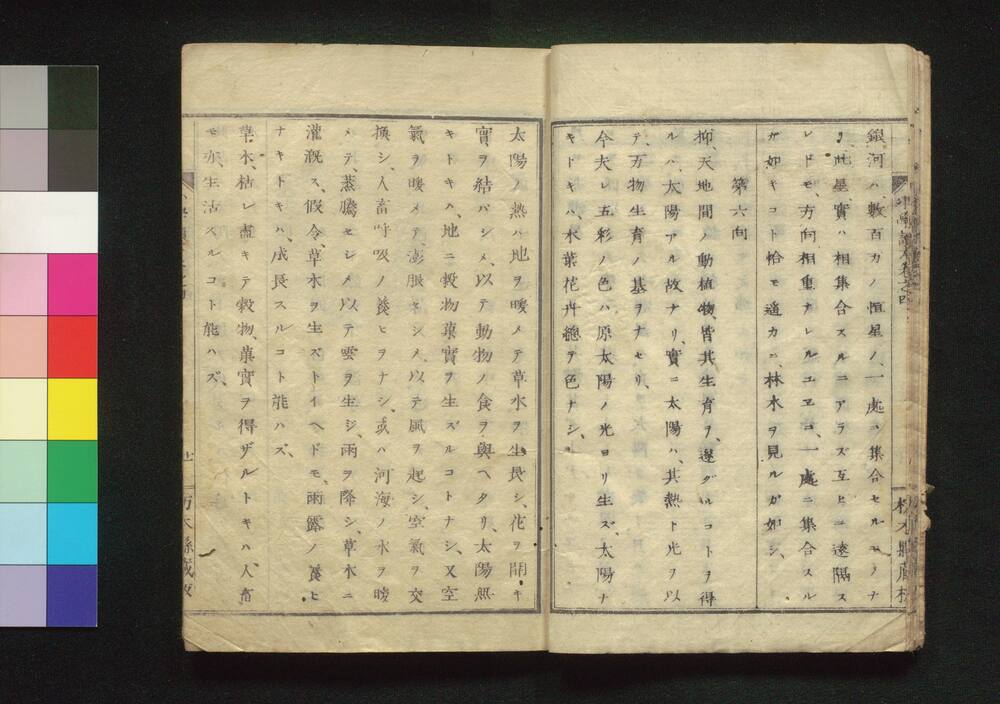 銀河ハ、數百カノ恒星ノ、一處ニ集合セルモノナ
リ、此星、實ハ相集合スルニアラズ、互ヒニ遠隔ス
レドモ、方向相重ナレルユヱニ、一處ニ集合スル
ガ如キコト恰モ遥カニ、林木ヲ見ルガ如シ、
第六向
抑、天地間ノ動植物、皆其生育ヲ、遂グルコトヲ得
ルハ、太陽アル故ナリ、實ニ太陽ハ、其熱ト光ヲ以
テ、万物生育ノ基ヲナセリ、
今夫レ五彩ノ色ハ原太陽ノ光ヨリ生ズ、太陽ナ
キトキハ、木葉花卉總テ色ナシ、
太陽ノ熱ハ地ヲ暖メテ草木ヲ生長シ、花ヲ開キ
實ヲ結バシメ、以テ動物ノ食ヲ與ヘタリ、太陽無
キトキハ、地ニ穀物菓實ヲ生ズルコトナシ、又空
氣ヲ暖メテ、澎脹セシメ、以テ風ヲ起シ、空氣ヲ交
換シ、人畜呼吸ノ養ヒヲナシ、或ハ河海ノ水ヲ暖
メテ、蒸騰セシメ、以テ雲ヲ生ジ、雨ヲ降シ、草木ニ
灌漑ス、假令、草木ヲ生ズトイヘドモ、雨露ノ養ヒ
ナキトキハ、成長スルコト能ハズ、
草木、枯レ盡キテ穀物、菓實ヲ得ザルトキハ、人畜
モ亦、生活スルコト能ハズ、